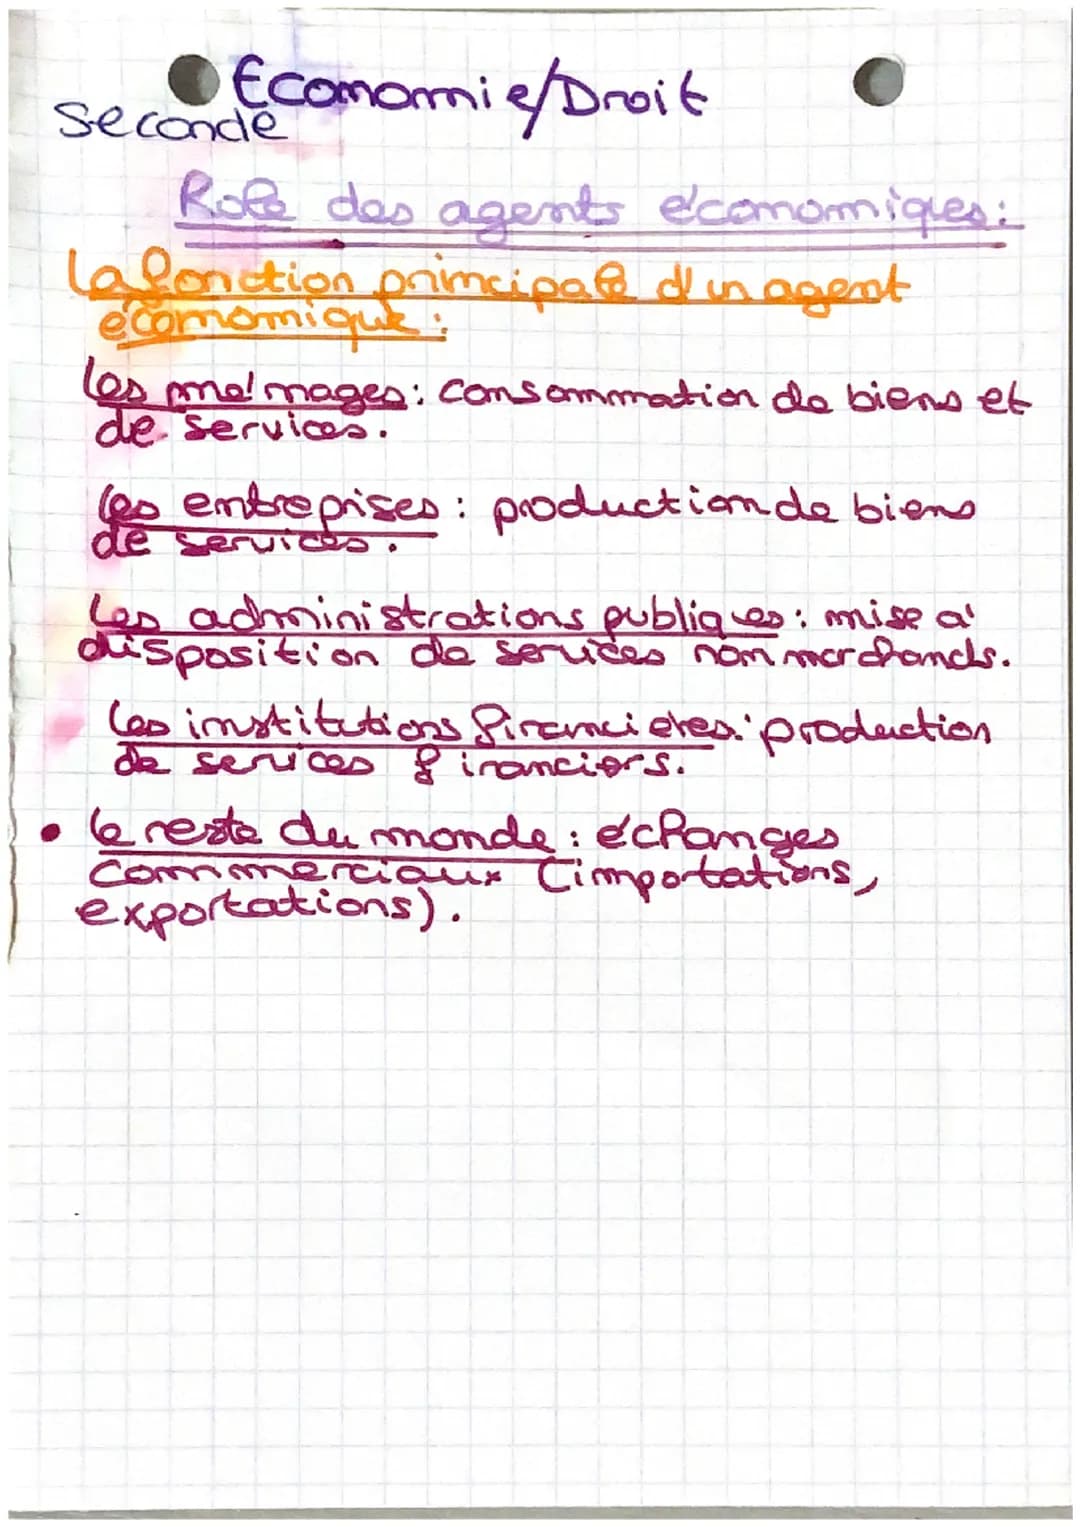 Economie/Droit
Seconde
Role des agents économiques:
La fonction principale d'un agent
économique:
Les ménages: consommation de biens et
de services.
Les entreprises: production de biens
de services.
Les administrations publiques: mise à
disposition de services non marchands.
Les institutions financières: production
de services financiers.
• Le reste du monde: échanges
commerciaux (importations,
exportations).